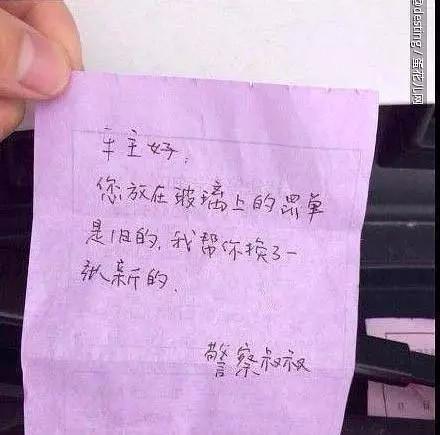 车主好:
您放在玻璃上的罚单
是旧的,我帮你换了一
张新的.
警察叔叔